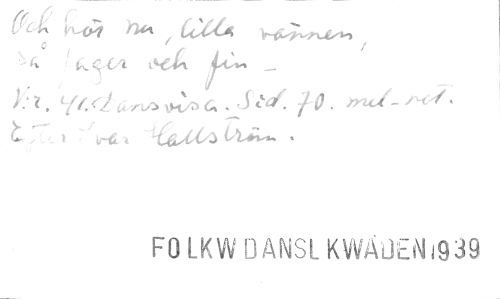 Och hör nu, lilla vännen,
så fager och fin –
Nr. 41. Dansvisa. Sid. 70. mel-not.
Efter Ivar Hallström.
FOLKW DANSLKWÄDEN 1939